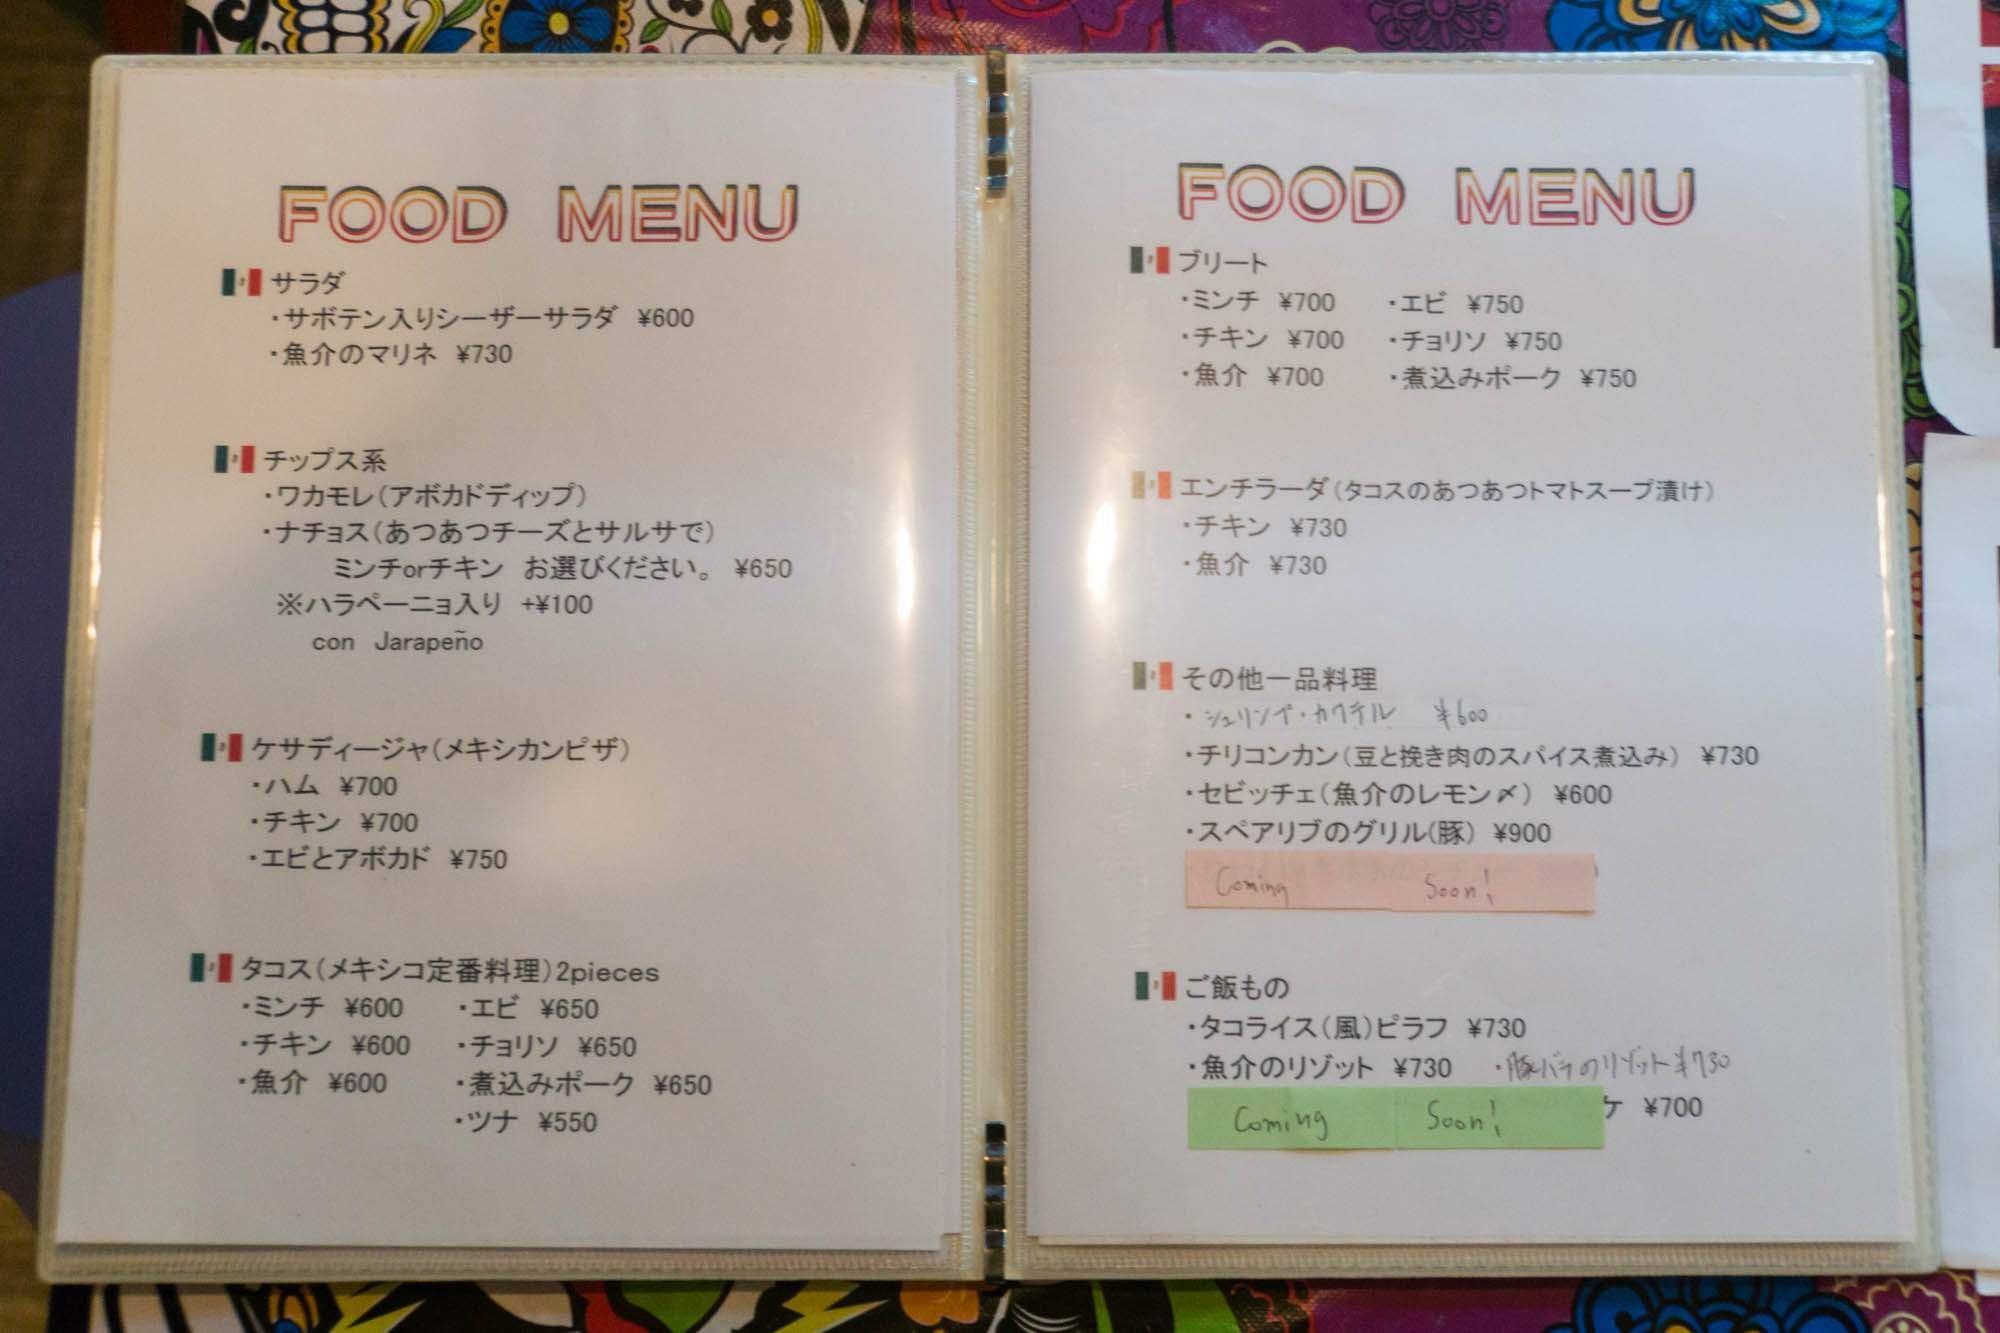 FOOD MENU
サラダ
・サボテン入りシーザーサラダ ¥600
・魚介のマリネ ¥730
チップス系
・ワカモレ(アボカドディップ)
・ナチョス(あつあつチーズとサルサで)
ミンチorチキン お選びください。 ¥650
※ハラペーニョ入り +¥100
con Jarapeño
ケサディージャ(メキシカンピザ)
・ハム ¥700
・チキン ¥700
・エビとアボカド ¥750
タコス(メキシコ定番料理)2pieces
・ミンチ ¥600 ・エビ ¥650
・チキン ¥600 ・チョリソ ¥650
・魚介 ¥600 ・煮込みポーク ¥650
・ツナ ¥550
FOOD MENU
ブリート
・ミンチ ¥700 ・エビ ¥750
・チキン ¥700 ・チョリソ ¥750
・魚介 ¥700 ・煮込みポーク ¥750
エンチラーダ(タコスのあつあつトマトスープ漬け)
・チキン ¥730
・魚介 ¥730
その他一品料理
・シュリンプ・カクテル ¥600
・チリコンカン(豆と挽き肉のスパイス煮込み) ¥730
・セビッチェ(魚介のレモン〆) ¥600
・スペアリブのグリル(豚) ¥900
Coming Soon!
ご飯もの
・タコライス(風)ピラフ ¥730
・魚介のリゾット ¥730 ・豚バラのリゾット ¥730
Coming Soon! ケ ¥700